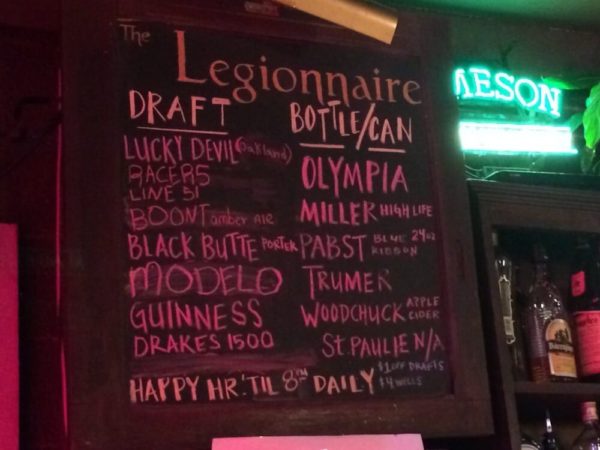 The
Legionnaire
DRAFT
LUCKY DEVIL (Oakland)
RACER 5
LINE 51
BOONT amber ale
BLACK BUTTE PORTER
MODELO
GUINNESS
DRAKES 1500
BOTTLE/CAN
OLYMPIA
MILLER HIGH LIFE
PABST BLUE RIBBON 24oz
TRUMER
WOODCHUCK APPLE CIDER
ST. PAULIE N/A
HAPPY HR. 'TIL 8PM DAILY
$1 OFF DRAFTS
$4 WELLS
MESON